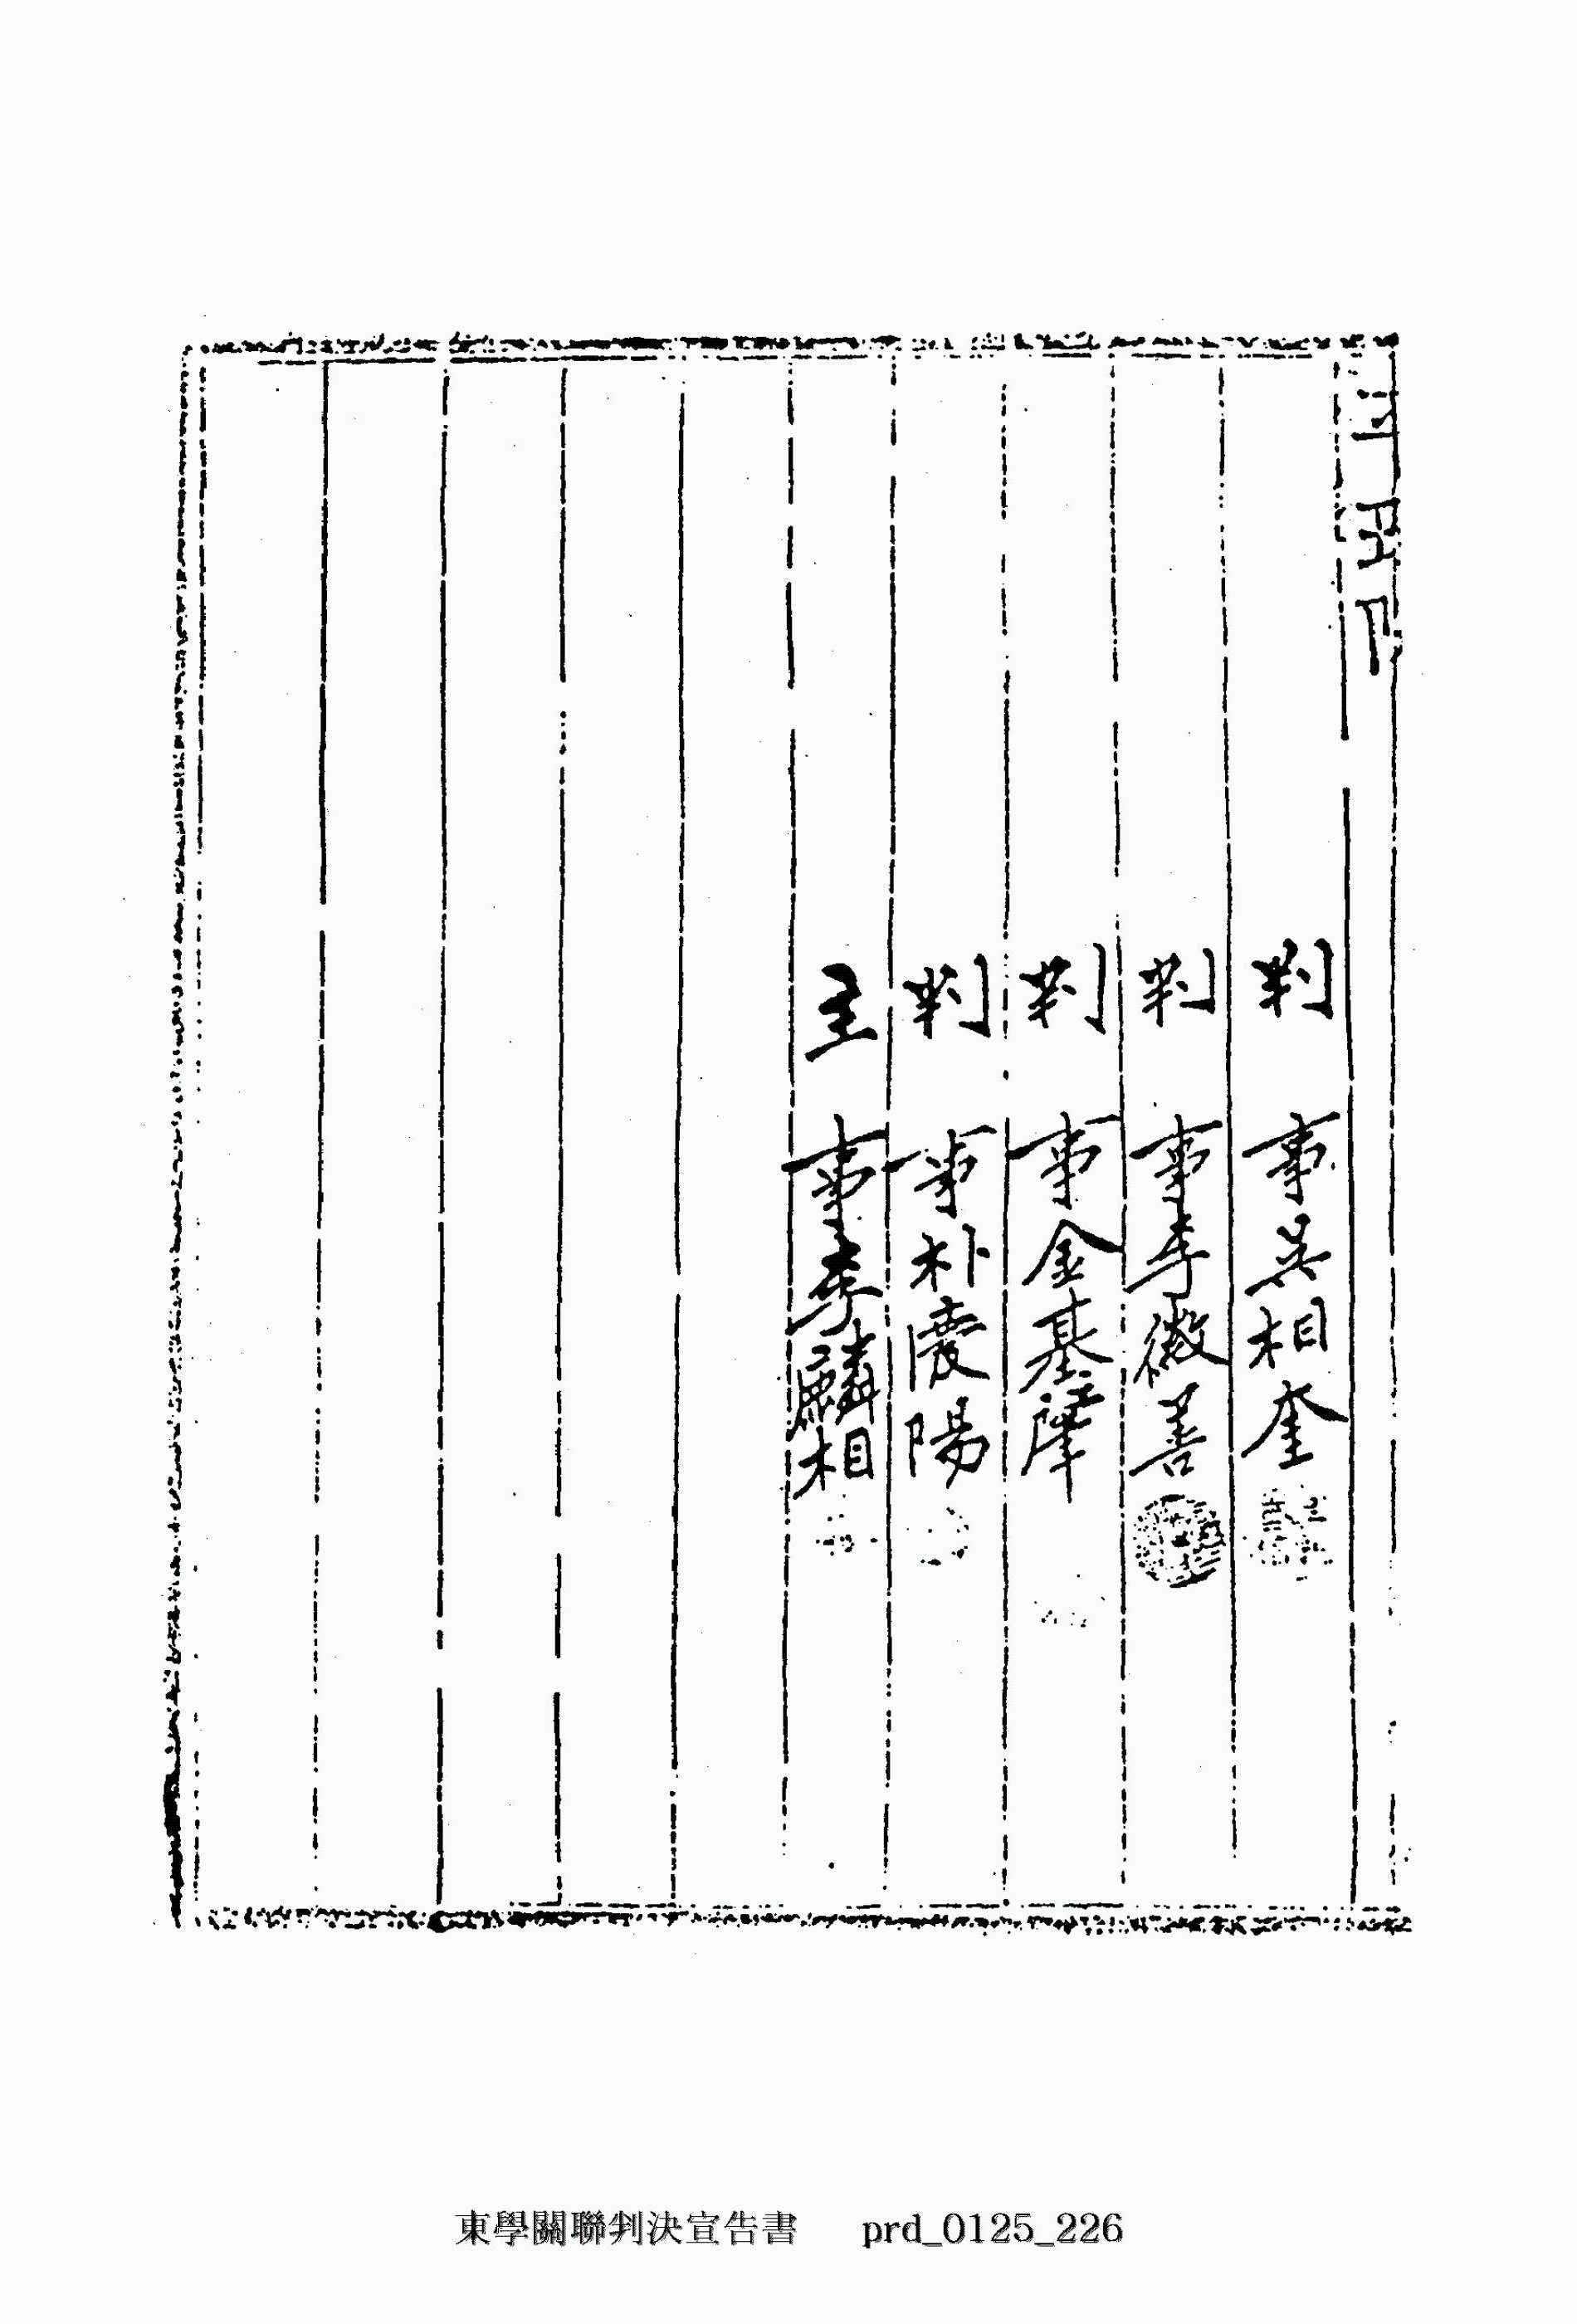 判 事 吳相奎
判 事 李徽善
判 事 金基肇
判 事 朴慶陽
主 事 李麟相
東學關聯判決宣告書 prd_0125_226